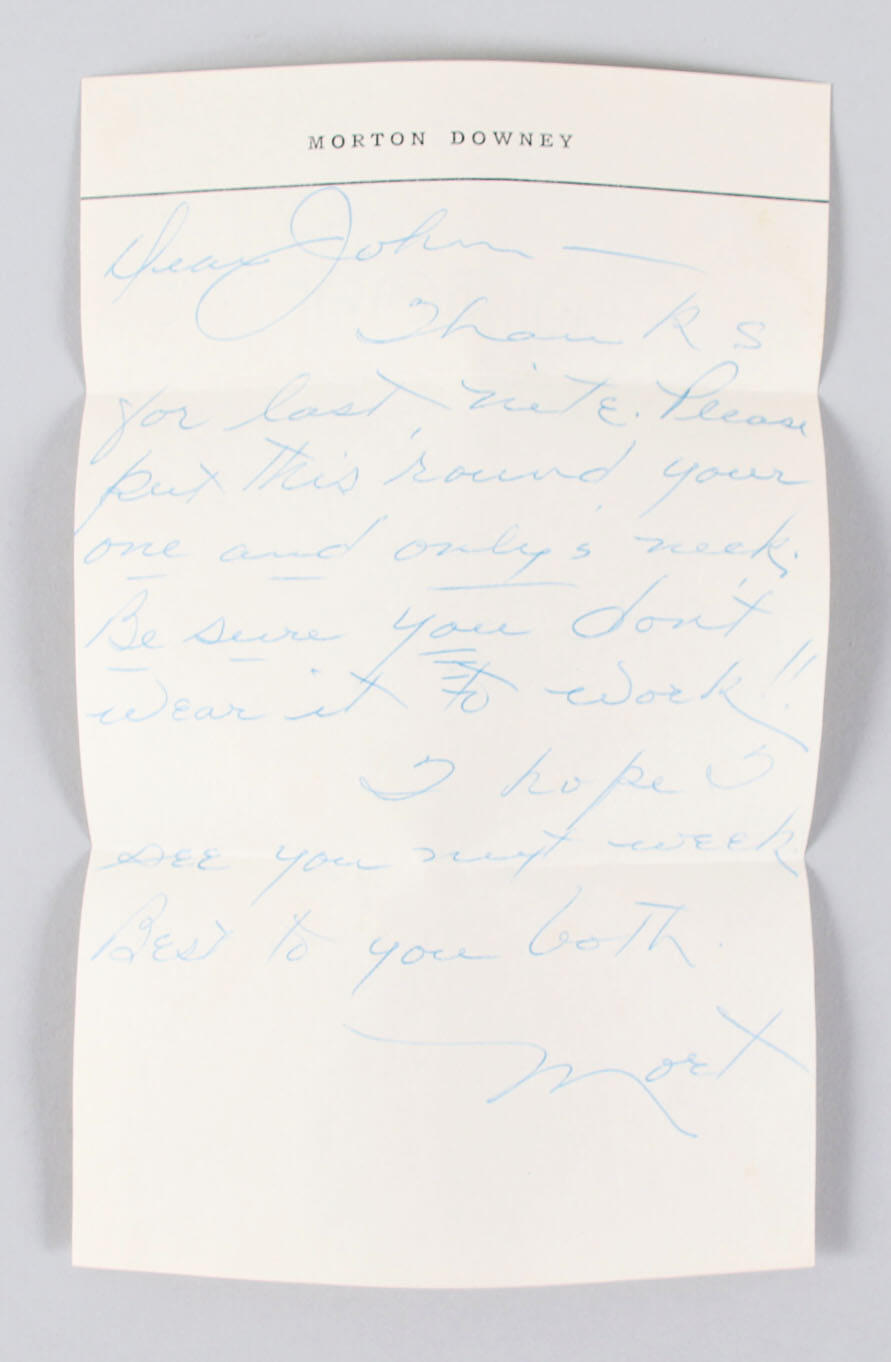 MORTON DOWNEY
Dear John —
Thanks
for last nite. Please
put this 'round your
one and only's neck.
Be sure you don't
wear it to work!!
I hope I
see you next week
Best to you both.
Mort